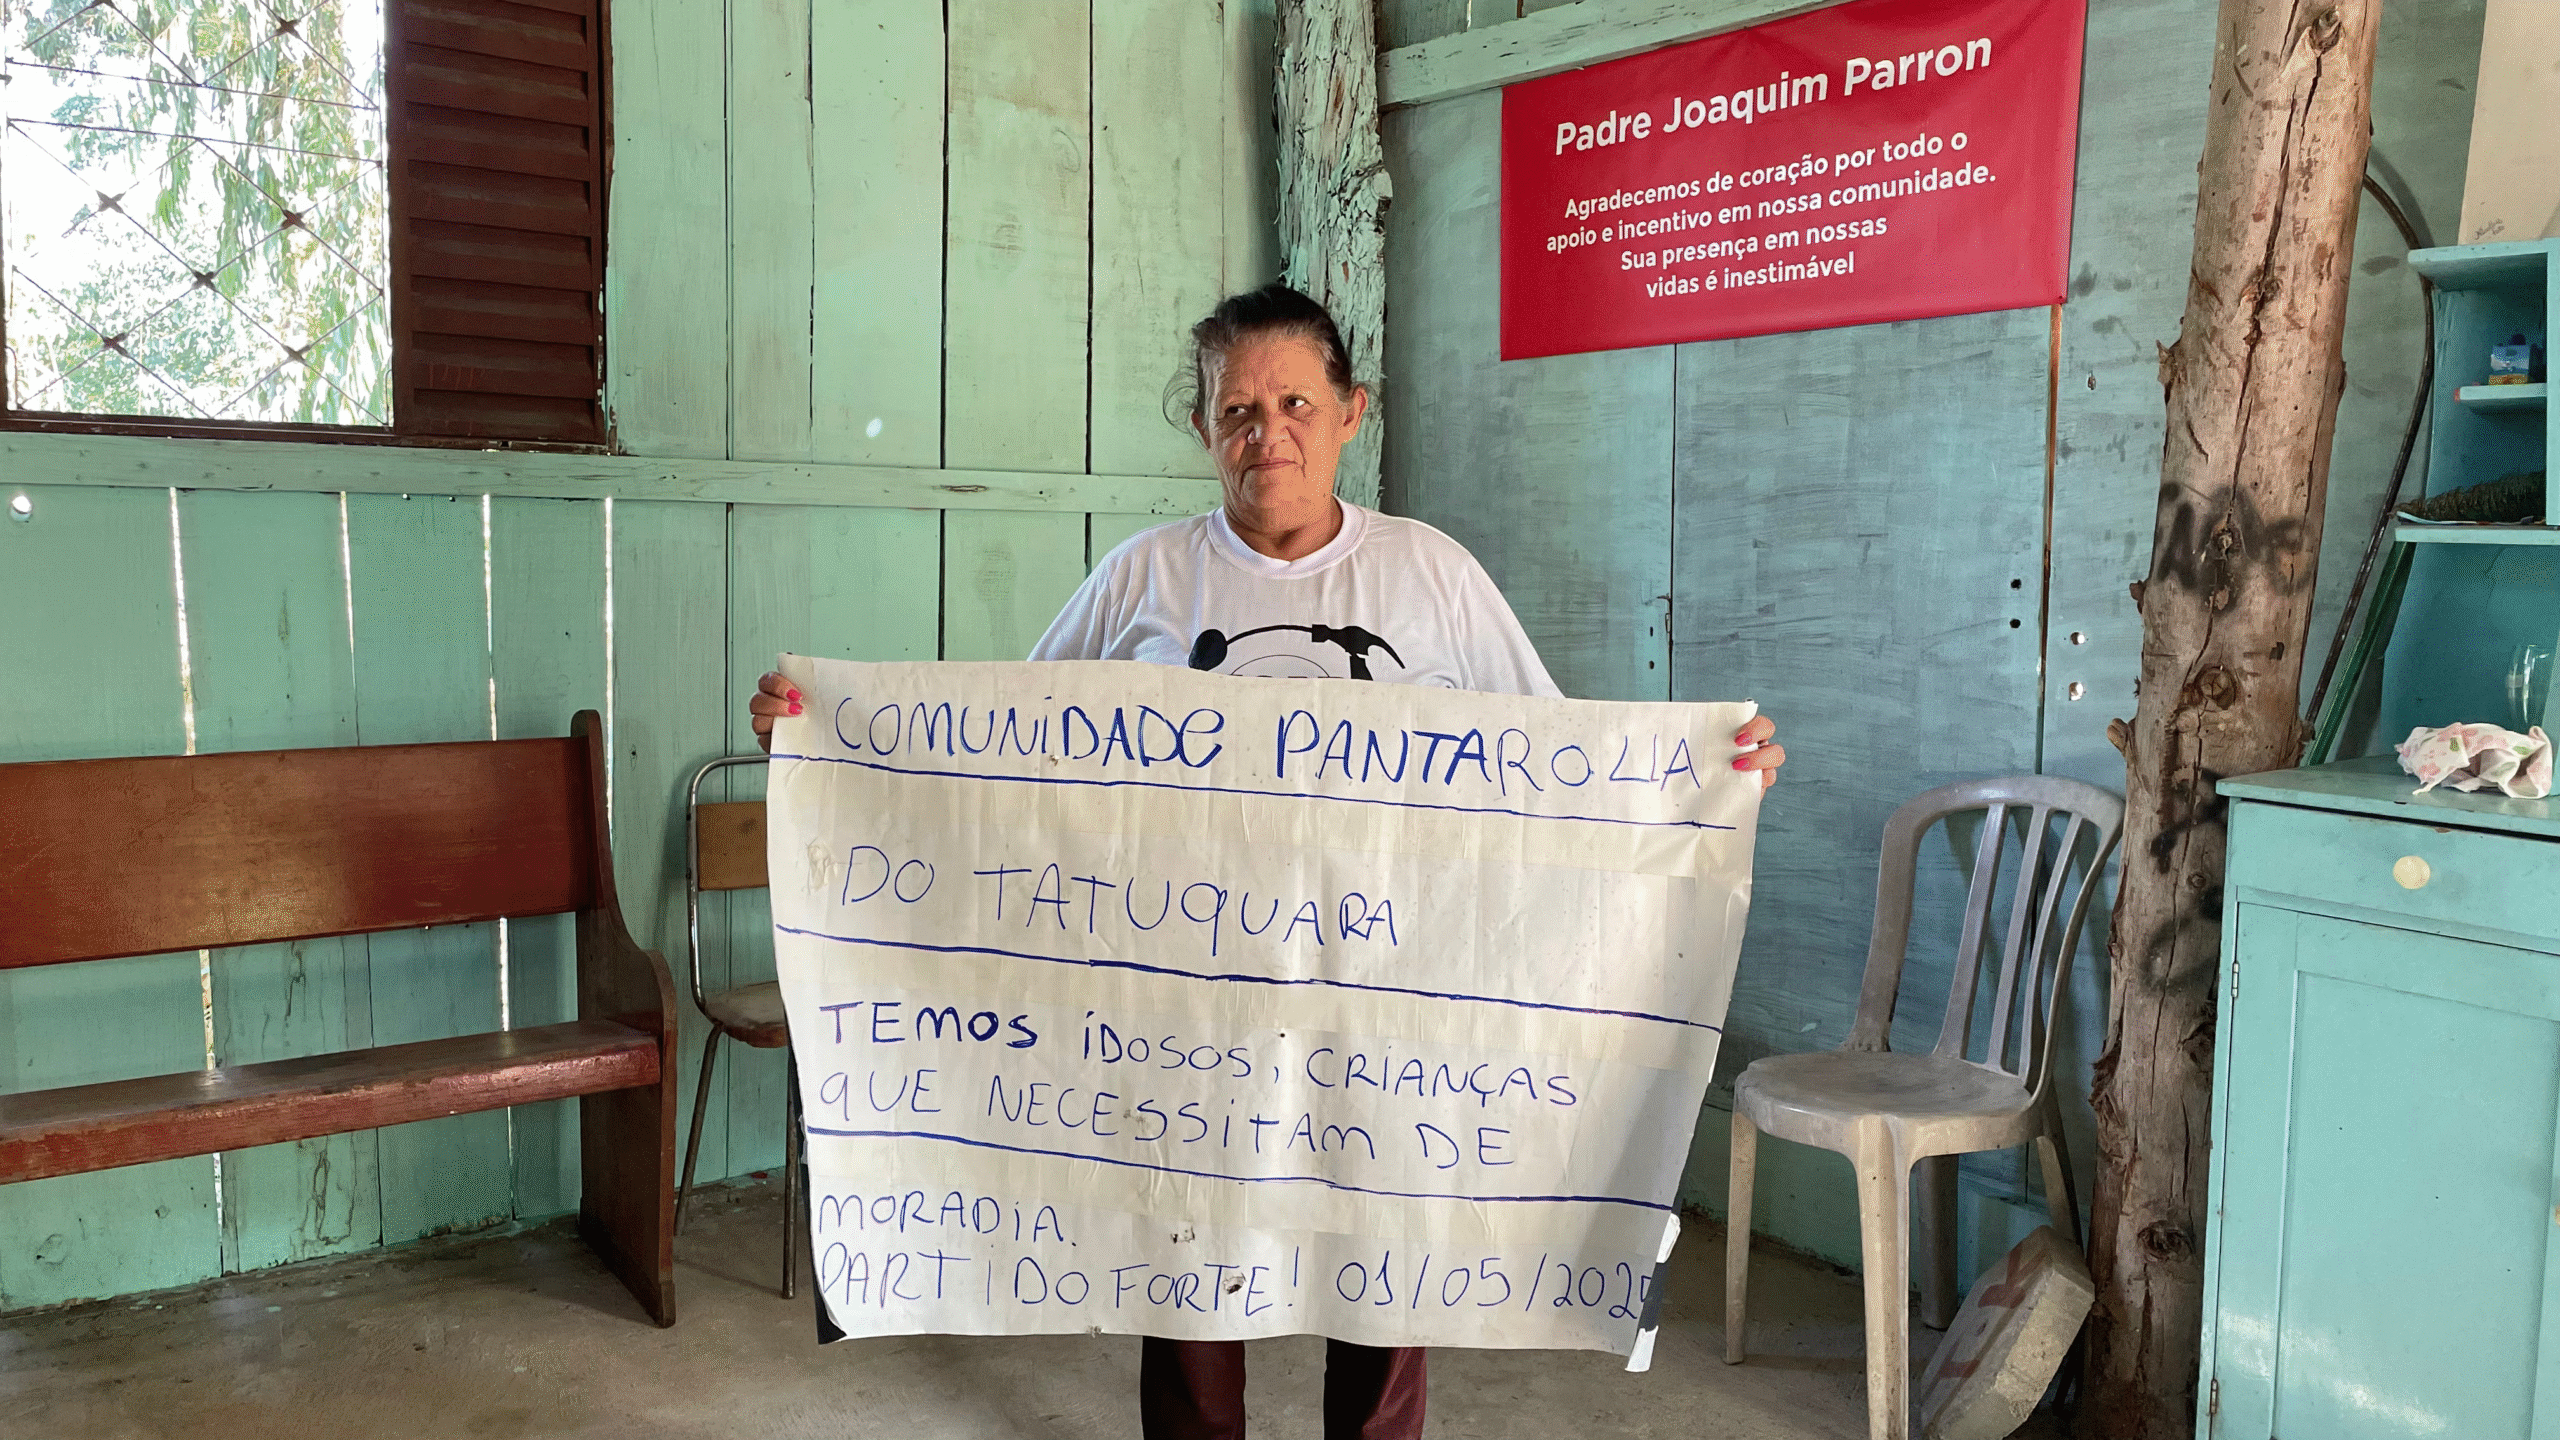 Padre Joaquim Parron
Agradecemos de coração por todo o
apoio e incentivo em nossa comunidade.
Sua presença em nossas
vidas é inestimável
COMUNIDADE PANTAROLLIA
DO TATUQUARA
TEMOS IDOSOS, CRIANÇAS
QUE NECESSITAM DE
MORADIA.
PARTIDO FORTE! 01/05/2025